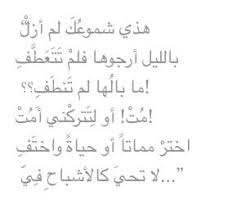 هذي شموعُكَ لم أزلْ
بالليل أرجوها فلمْ تَتَعَطَّفِ
!ما بالُها لم تَنطَفِ؟؟
!مُتْ! أو لِتَتركْني أمُتْ
اخترْ مماتاً أو حياةً واختَفِ
”...لا تحيَ كالأشباحِ فِيَّ